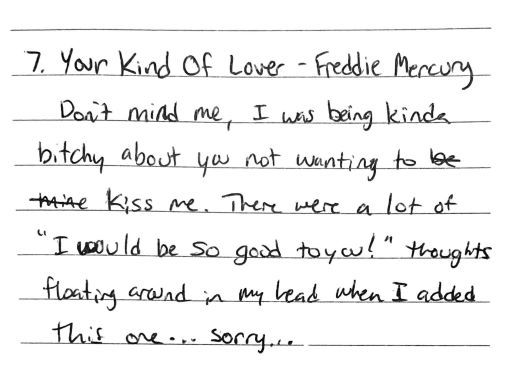 7. Your Kind Of Lover - Freddie Mercury
Don't mind me, I was being kinda
bitchy about you not wanting to be
mine kiss me. There were a lot of
"I would be so good to you!" thoughts
floating around in my head when I added
this one... sorry...